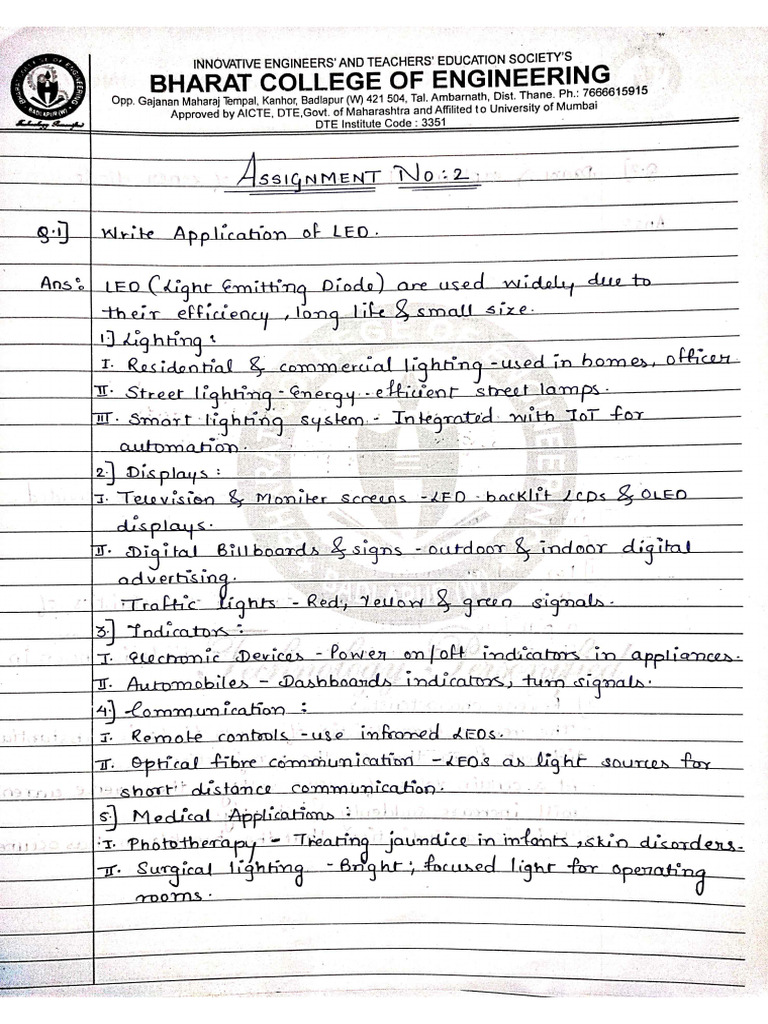 INNOVATIVE ENGINEERS' AND TEACHERS' EDUCATION SOCIETY'S
BHARAT COLLEGE OF ENGINEERING
Opp. Gajanan Maharaj Tempal, Kanhor, Badlapur (W) 421 504, Tal. Ambarnath, Dist. Thane. Ph.: 7666615915
Approved by AICTE, DTE,Govt. of Maharashtra and Affilited to University of Mumbai
DTE Institute Code : 3351
ASSIGNMENT NO:2
Q.1] Write Application of LED.
Ans: LED (Light Emitting Diode) are used widely due to
their efficiency, long life & small size.
1.] Lighting:
I. Residential & commercial lighting - used in homes, officer
II. Street lighting - Energy - efficient street lamps.
III. Smart lighting system - Integrated with IoT for
automation.
2.] Displays:
I. Television & Moniter screens - LED - backlit LCDs & OLED
displays.
II. Digital Billboards & signs - outdoor & indoor digital
advertising.
Traffic lights - Red, Yellow & green signals.
3.] Indicators:
I. Electronic Devices - Power on/off indicators in appliances.
II. Automobiles - Dashboards indicators, turn signals.
4.] Communication:
I. Remote controls - use infrared LEDs.
II. Optical fibre communication - LEDs as light sources for
short distance communication.
5.] Medical Applications:
I. Phototherapy - Treating jaundice in infants, skin disorders.
II. Surgical lighting - Bright; focused light for operating
rooms.